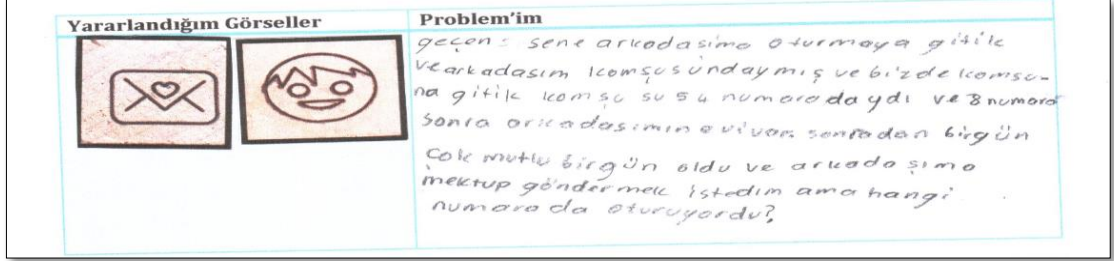 Yararlandığım Görseller
Problem'im
geçen: sene arkadasıma oturmaya gitik
ve arkadasım komsusundaymış ve bizde komsu-
na gitik komsu su 54 numaradaydı ve 8 numara
sonra arkadasımın evi var. sonradan birgün
çok mutlu birgün oldu ve arkadaşıma
mektup göndermek istedim ama hangi
numarada oturuyordu?